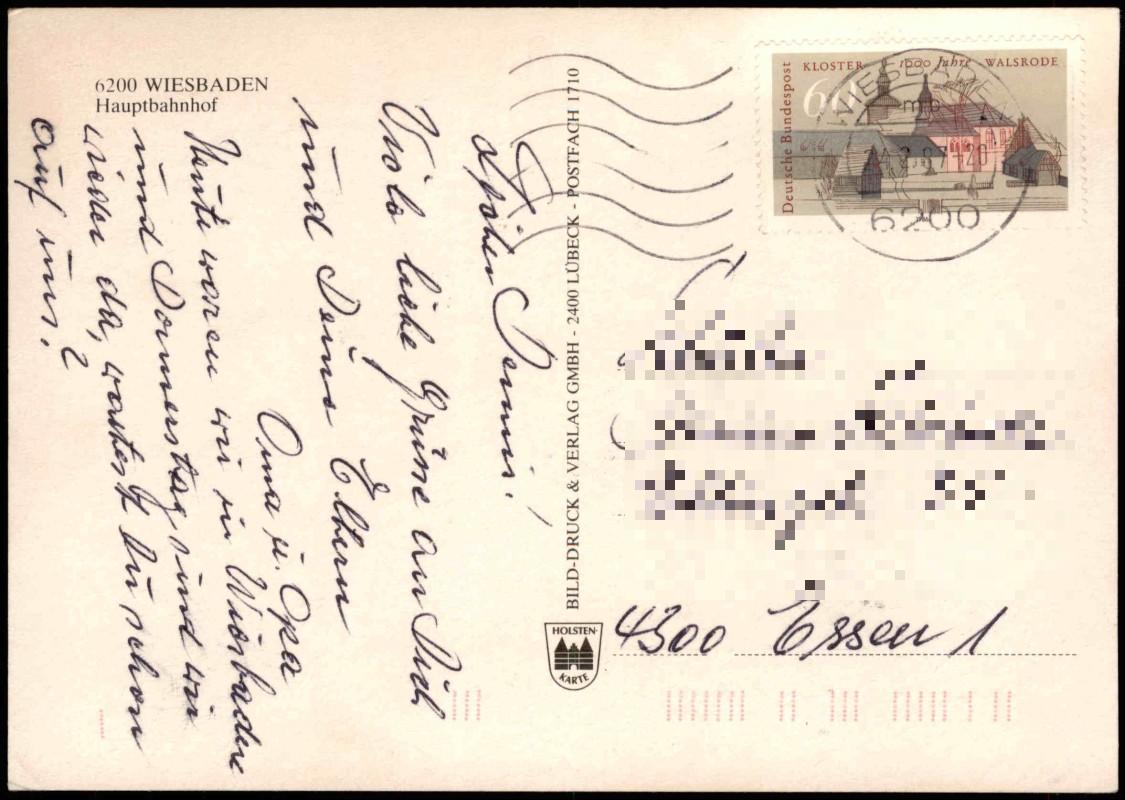 6200 WIESBADEN
Hauptbahnhof
Deutsche Bundespost
KLOSTER 1000 Jahre WALSRODE
60
WIESBADEN
mb
6200
BILD-DRUCK & VERLAG GMBH - 2400 LÜBECK - POSTFACH 1710
HOLSTEN-
KARTE
4300 Essen 1
Denni!
Viele liebe Grüsse an Dich
und Deine Eltern
Oma u. Opa
Heute waren wir in Wiesbaden
und Donnerstag sind wir
wieder da, wartest Du schon
auf uns?